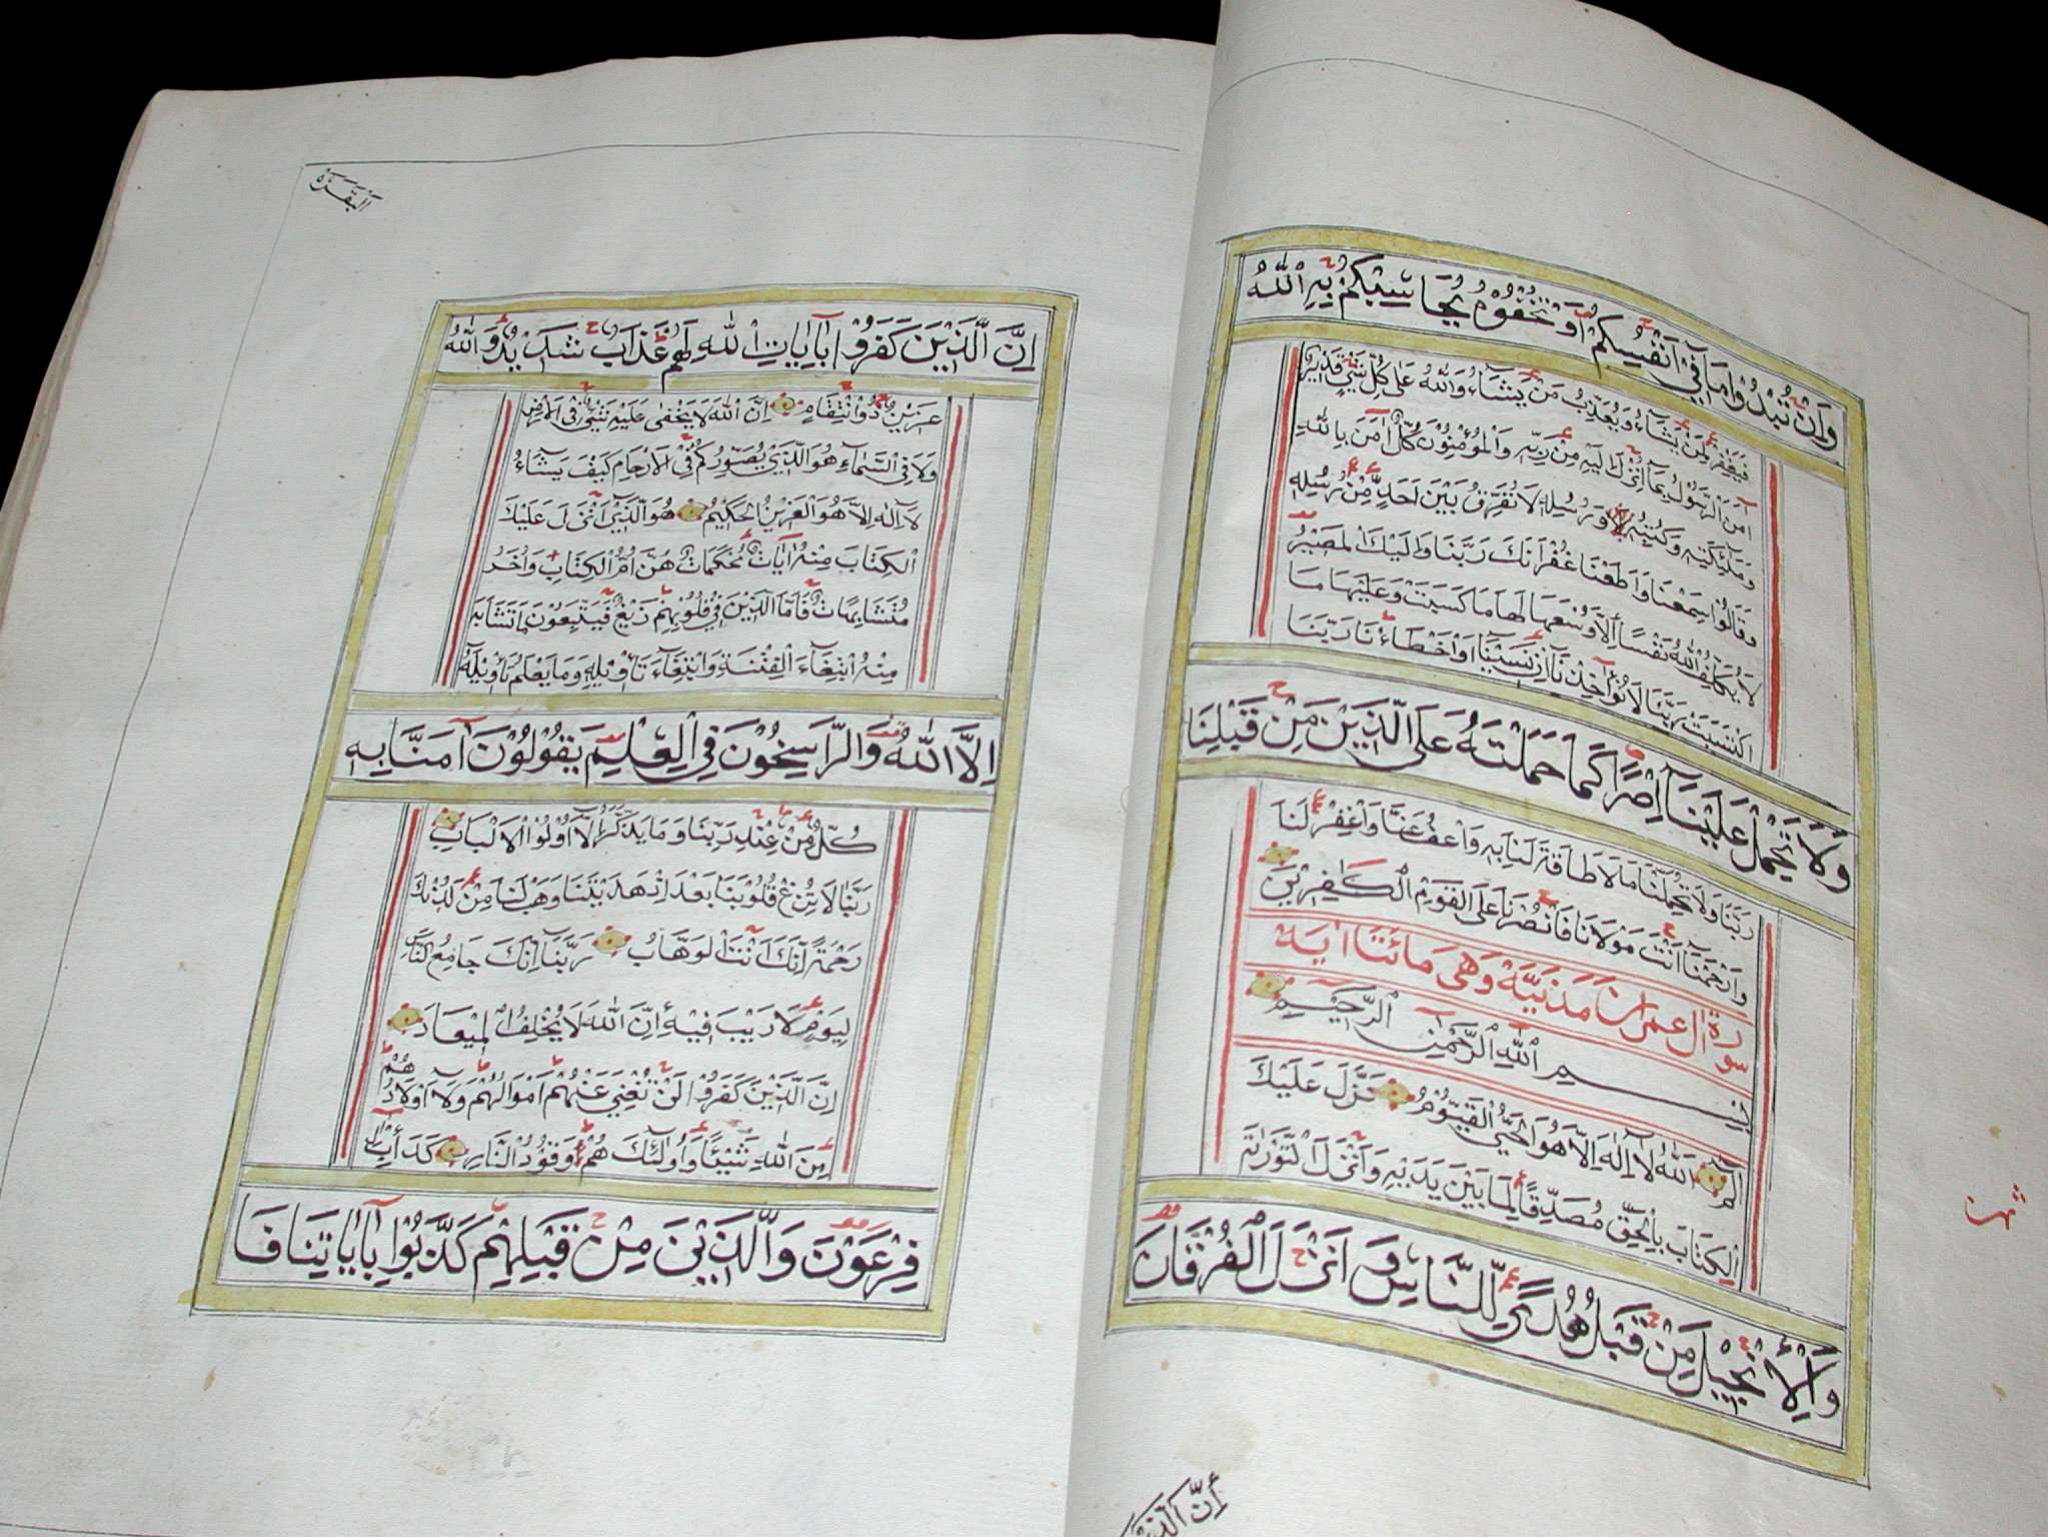 وَاِنْ تُبْدُوْا مَا فِيْٓ اَنْفُسِكُمْ اَوْ تُخْفُوْهُ يُحَاسِبْكُمْ بِهِ اللّٰهُ
فَيَغْفِرُ لِمَنْ يَشَآءُ وَيُعَذِّبُ مَنْ يَشَآءُ وَاللّٰهُ عَلٰى كُلِّ شَيْءٍ قَدِيْرٌ
اٰمَنَ الرَّسُوْلُ بِمَآ اُنْزِلَ اِلَيْهِ مِنْ رَبِّهٖ وَالْمُؤْمِنُوْنَ كُلٌّ اٰمَنَ بِاللّٰهِ
وَمَلٰٓئِكَتِهٖ وَكُتُبِهٖ وَرُسُلِهٖ لَا نُفَرِّقُ بَيْنَ اَحَدٍ مِّنْ رُسُلِهٖ
وَقَالُوْا سَمِعْنَا وَاَطَعْنَا غُفْرَانَكَ رَبَّنَا وَاِلَيْكَ الْمَصِيْرُ
لَا يُكَلِّفُ اللّٰهُ نَفْسًا اِلَّا وُسْعَهَا لَهَا مَا كَسَبَتْ وَعَلَيْهَا مَا
اكْتَسَبَتْ رَبَّنَا لَا تُؤَاخِذْنَآ اِنْ نَسِيْنَآ اَوْ اَخْطَاْنَا رَبَّنَا
وَلَا تَحْمِلْ عَلَيْنَآ اِصْرًا كَمَا حَمَلْتَهُ عَلَى الَّذِيْنَ مِنْ قَبْلِنَا
رَبَّنَا وَلَا تُحَمِّلْنَا مَا لَا طَاقَةَ لَنَا بِهٖ وَاعْفُ عَنَّا وَاغْفِرْ لَنَا
وَارْحَمْنَآ اَنْتَ مَوْلَانَا فَانْصُرْنَا عَلَى الْقَوْمِ الْكٰفِرِيْنَ
سورة آل عمران مَدَنِيَّة وَهِىَ مائتا اٰية
بِسْمِ اللّٰهِ الرَّحْمٰنِ الرَّحِيْمِ
الٓمٓ اَللّٰهُ لَآ اِلٰهَ اِلَّا هُوَ الْحَيُّ الْقَيُّوْمُ نَزَّلَ عَلَيْكَ
الْكِتَابَ بِالْحَقِّ مُصَدِّقًا لِمَا بَيْنَ يَدَيْهِ وَاَنْزَلَ التَّوْرٰىةَ
وَالْاِنْجِيْلَ مِنْ قَبْلُ هُدًى لِّلنَّاسِ وَاَنْزَلَ الْفُرْقَانَ
اِنَّ الَّذِيْنَ
اَلْبَقَرَة
اِنَّ الَّذِيْنَ كَفَرُوْا بِاٰيَاتِ اللّٰهِ لَهُمْ عَذَابٌ شَدِيْدٌ وَاللّٰهُ
عَزِيْزٌ ذُو انْتِقَامٍ اِنَّ اللّٰهَ لَا يَخْفٰى عَلَيْهِ شَيْءٌ فِى الْاَرْضِ
وَلَا فِى السَّمَآءِ هُوَ الَّذِيْ يُصَوِّرُكُمْ فِى الْاَرْحَامِ كَيْفَ يَشَآءُ
لَآ اِلٰهَ اِلَّا هُوَ الْعَزِيْزُ الْحَكِيْمُ هُوَ الَّذِيْٓ اَنْزَلَ عَلَيْكَ
الْكِتَابَ مِنْهُ اٰيَاتٌ مُحْكَمَاتٌ هُنَّ اُمُّ الْكِتَابِ وَاُخَرُ
مُتَشَابِهَاتٌ فَاَمَّا الَّذِيْنَ فِيْ قُلُوْبِهِمْ زَيْغٌ فَيَتَّبِعُوْنَ مَا تَشَابَهَ
مِنْهُ ابْتِغَآءَ الْفِتْنَةِ وَابْتِغَآءَ تَاْوِيْلِهٖ وَمَا يَعْلَمُ تَاْوِيْلَهُ
اِلَّا اللّٰهُ وَالرَّاسِخُوْنَ فِى الْعِلْمِ يَقُوْلُوْنَ اٰمَنَّا بِهٖ
كُلٌّ مِّنْ عِنْدِ رَبِّنَا وَمَا يَذَّكَّرُ اِلَّآ اُولُوا الْاَلْبَابِ
رَبَّنَا لَا تُزِغْ قُلُوْبَنَا بَعْدَ اِذْ هَدَيْتَنَا وَهَبْ لَنَا مِنْ لَدُنْكَ
رَحْمَةً اِنَّكَ اَنْتَ الْوَهَّابُ رَبَّنَآ اِنَّكَ جَامِعُ النَّاسِ
لِيَوْمٍ لَا رَيْبَ فِيْهِ اِنَّ اللّٰهَ لَا يُخْلِفُ الْمِيْعَادَ
اِنَّ الَّذِيْنَ كَفَرُوْا لَنْ تُغْنِيَ عَنْهُمْ اَمْوَالُهُمْ وَلَآ اَوْلَادُهُمْ
مِنَ اللّٰهِ شَيْئًا وَاُولٰٓئِكَ هُمْ وَقُوْدُ النَّارِ كَدَاْبِ اٰلِ
فِرْعَوْنَ وَالَّذِيْنَ مِنْ قَبْلِهِمْ كَذَّبُوْا بِاٰيَاتِنَا فَا